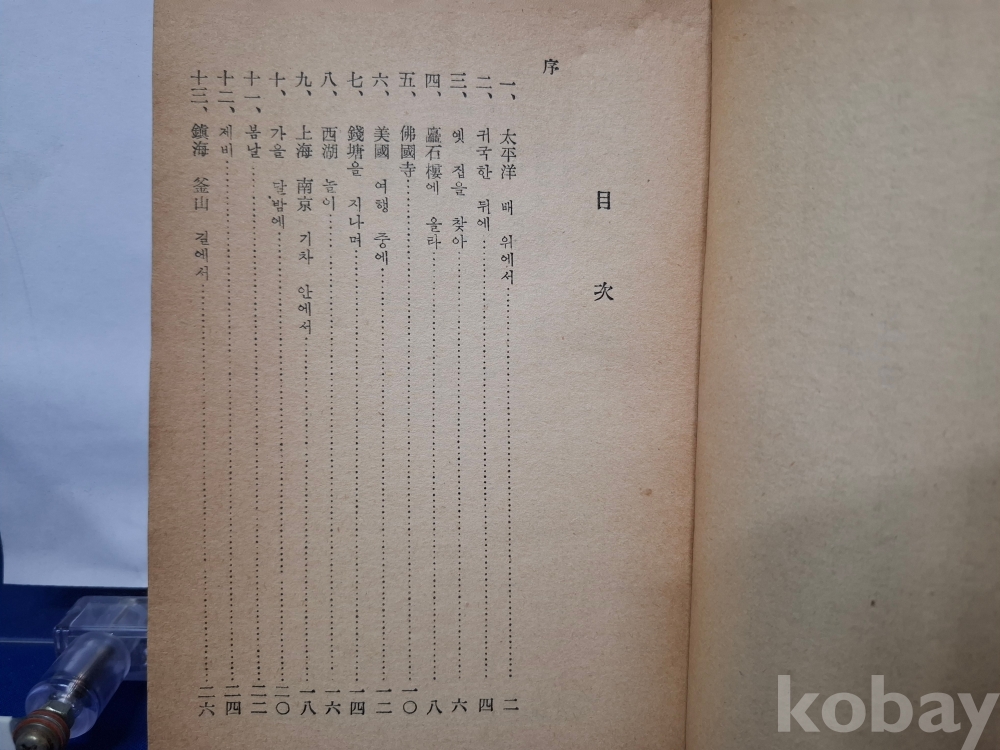 目次
序
一、 太平洋 배 위에서 二
二、 귀국한 뒤에 四
三、 옛 집을 찾아 六
四、 矗石樓에 올라 八
五、 佛國寺 一〇
六、 美國 여행 중에 一二
七、 錢塘을 지나며 一四
八、 西湖 놀이 一六
九、 上海 南京 기차 안에서 一八
十、 가을 달밤에 二〇
十一、 봄날 二二
十二、 제비 二四
十三、 鎭海 釜山 길에서 二六
kobay